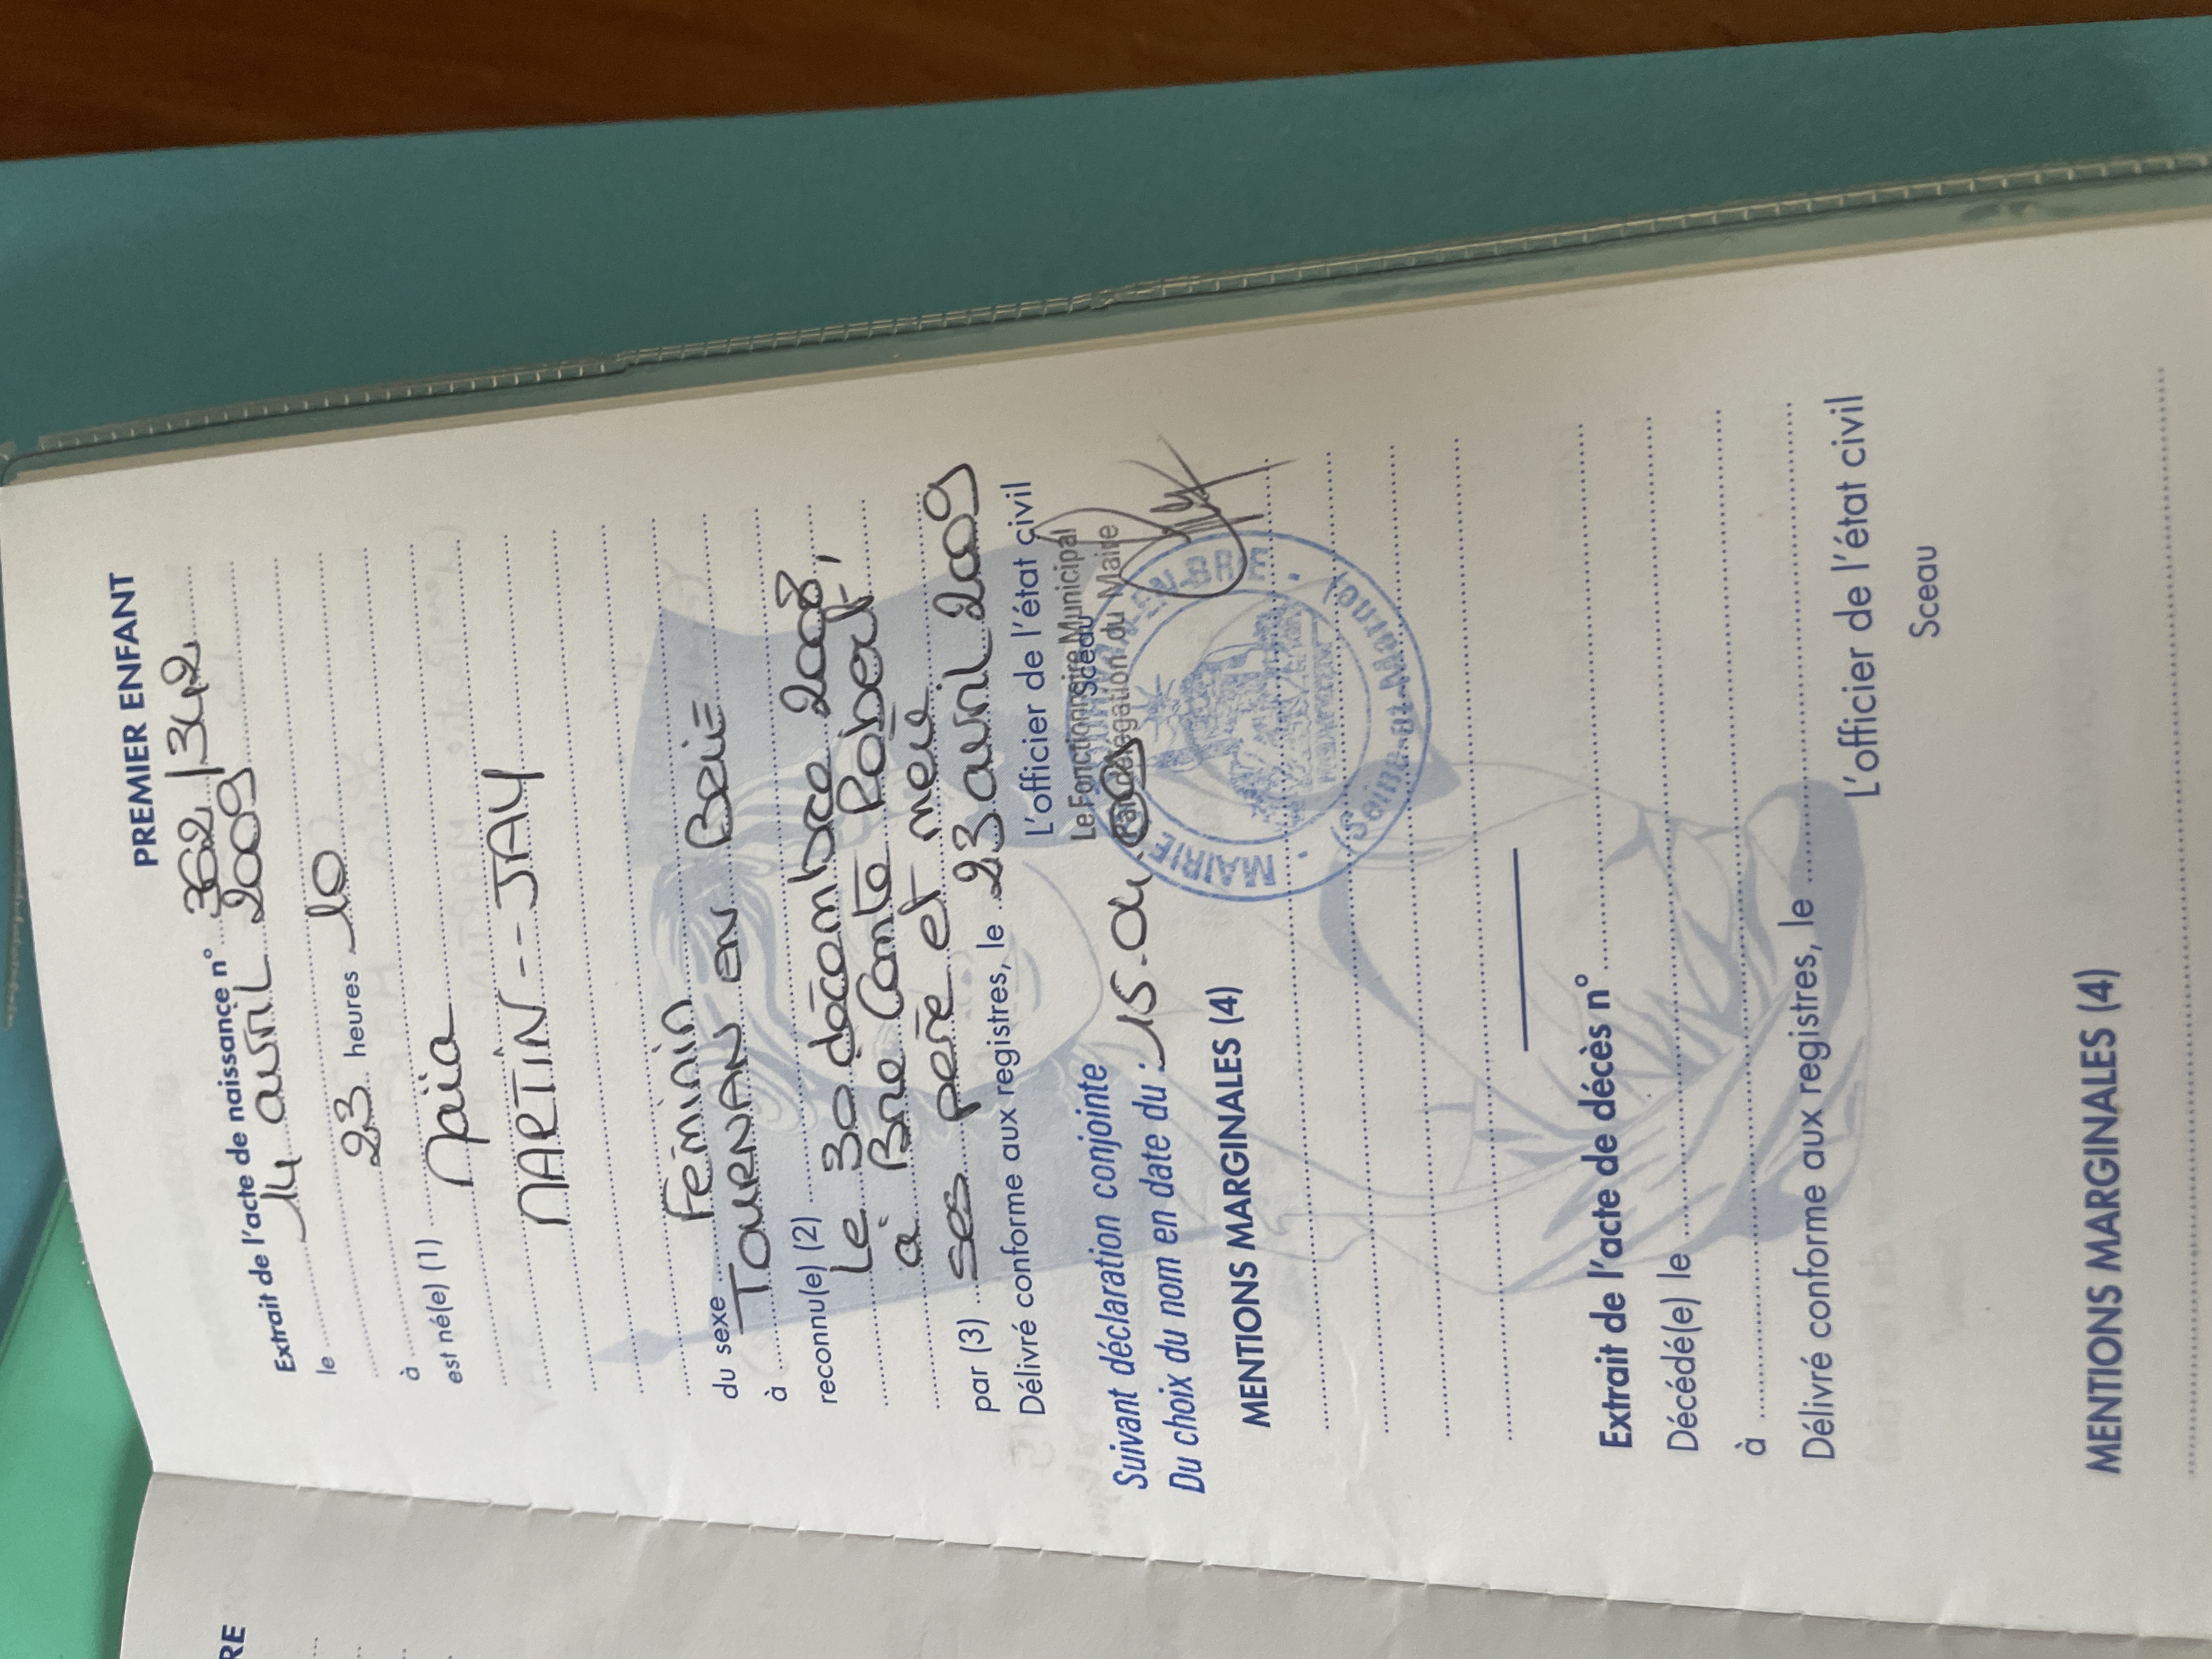 RE
PREMIER ENFANT
Extrait de l'acte de naissance n° 362/342
le 14 avril 2009
23 heures 10
à
est né(e) (1) Maïa
MARTIN -- JAY
du sexe Féminin
à TOURNAN en Brie
reconnu(e) (2)
Le 30 décembre 2008,
à Brie Comte Robert,
par (3) ses père et mère
Délivré conforme aux registres, le 23 avril 2009
L'officier de l'état civil
Le Fonctionnaire Municipal
Sceau
Par délégation du Maire
MAIRIE EN-BRIE
(Seine-et-Marne)
Suivant déclaration conjointe
Du choix du nom en date du : 15.04.
MENTIONS MARGINALES (4)
Extrait de l'acte de décès n°
Décédé(e) le
à
Délivré conforme aux registres, le
L'officier de l'état civil
Sceau
MENTIONS MARGINALES (4)